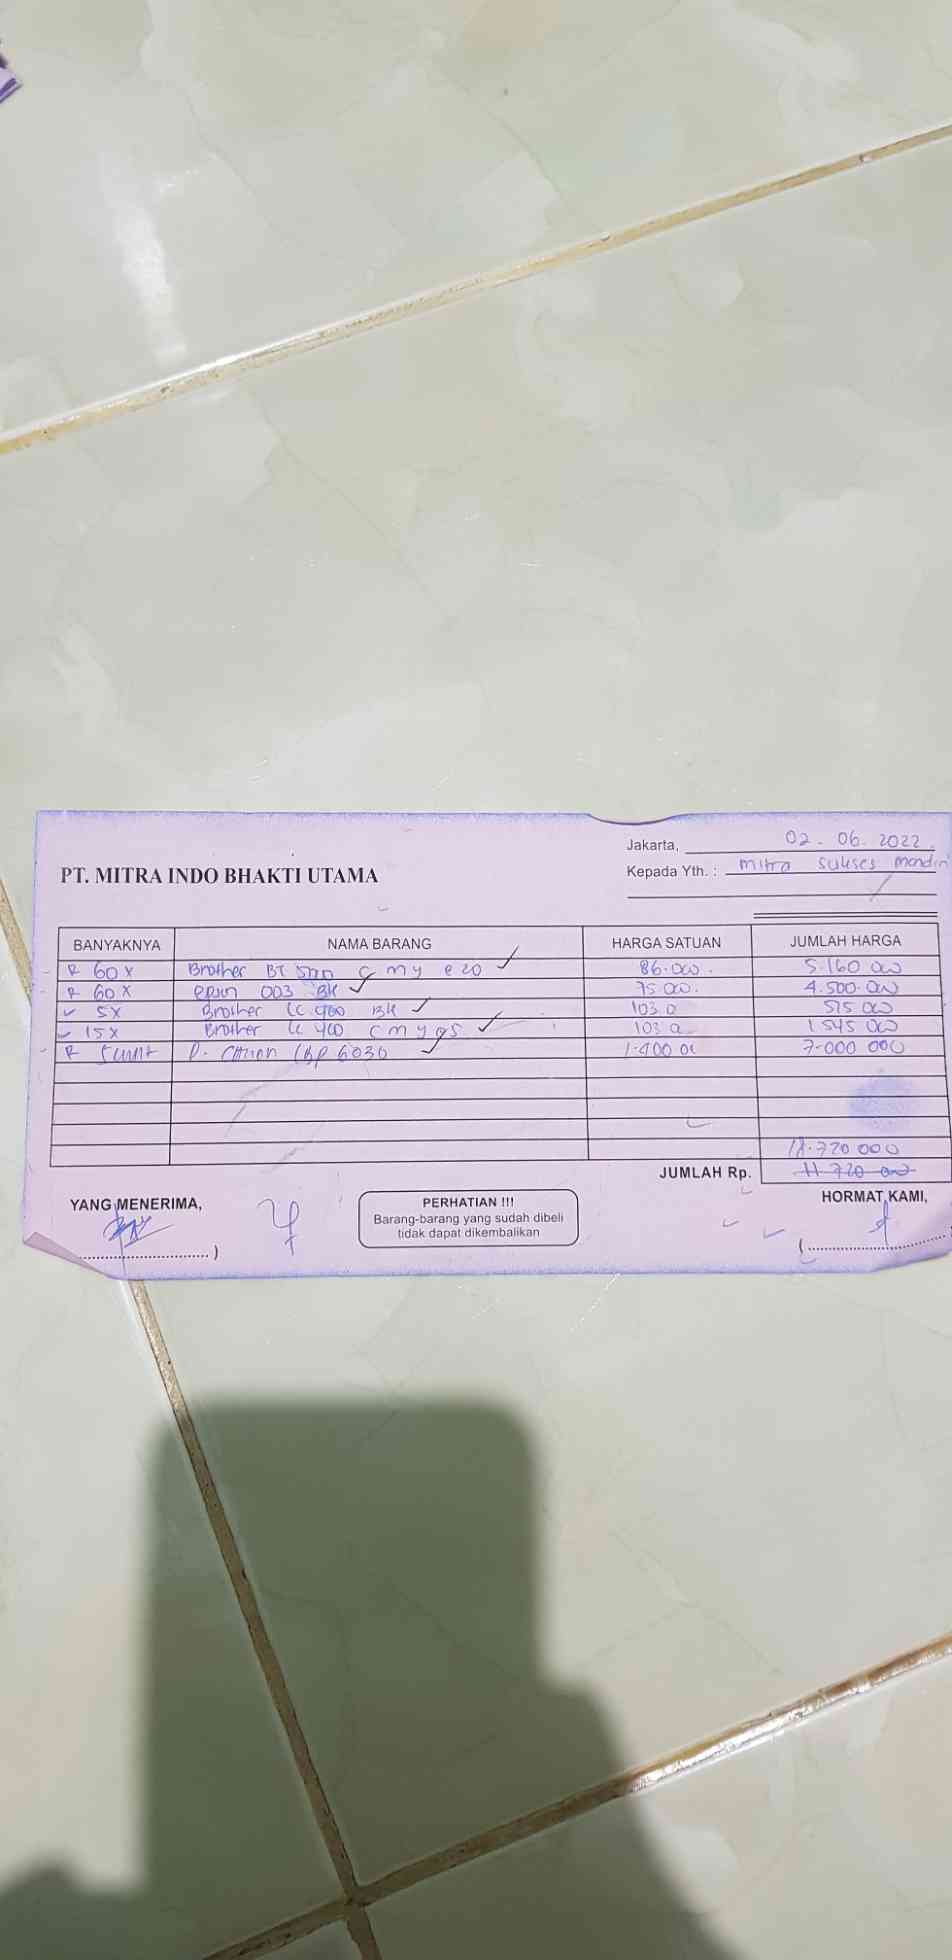 Jakarta, 02. 06. 2022.
PT. MITRA INDO BHAKTI UTAMA
Kepada Yth. : mitra sukses mandiri
BANYAKNYA NAMA BARANG HARGA SATUAN JUMLAH HARGA
60 x Brother BT c m y e 20 86.000. 5.160 000
60 x 003 BK 75 000. 4.500.000
5x Brother LC 400 BK 103.0 515 000
15x Brother LC 400 c m y @ 5 103 0 1 545 000
5 unit P. 6030 1.400 00 7.000 000
18.720 000
JUMLAH Rp. 11 720 000
YANG MENERIMA,
PERHATIAN !!!
Barang-barang yang sudah dibeli
tidak dapat dikembalikan
HORMAT KAMI,